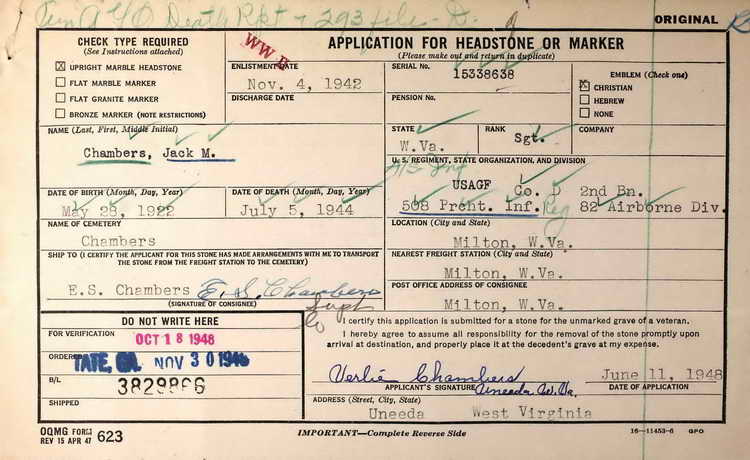 Fin A G O Death Rpt + 293 file - D.
ORIGINAL
CHECK TYPE REQUIRED
(See Instructions attached)
☒ UPRIGHT MARBLE HEADSTONE
☐ FLAT MARBLE MARKER
☐ FLAT GRANITE MARKER
☐ BRONZE MARKER (NOTE RESTRICTIONS)
WW II
APPLICATION FOR HEADSTONE OR MARKER
(Please make out and return in duplicate)
ENLISTMENT DATE
Nov. 4, 1942
DISCHARGE DATE
SERIAL No.
15338638
PENSION No.
EMBLEM (Check one)
☒ CHRISTIAN
☐ HEBREW
☐ NONE
NAME (Last, First, Middle Initial)
Chambers, Jack M.
STATE
W.Va.
RANK
Sgt.
COMPANY
U. S. REGIMENT, STATE ORGANIZATION, AND DIVISION
USAGF Co. D 2nd Bn.
508 Prcht. Inf. Reg 82 Airborne Div.
DATE OF BIRTH (Month, Day, Year)
May 28, 1922
DATE OF DEATH (Month, Day, Year)
July 5, 1944
NAME OF CEMETERY
Chambers
LOCATION (City and State)
Milton, W.Va.
SHIP TO (I CERTIFY THE APPLICANT FOR THIS STONE HAS MADE ARRANGEMENTS WITH ME TO TRANSPORT
THE STONE FROM THE FREIGHT STATION TO THE CEMETERY)
E.S. Chambers E. S. Chambers
Supt
(SIGNATURE OF CONSIGNEE)
NEAREST FREIGHT STATION (City and State)
Milton, W.Va.
POST OFFICE ADDRESS OF CONSIGNEE
Milton, W.Va.
DO NOT WRITE HERE
FOR VERIFICATION
OCT 18 1948
ORDERED
TATE, GA. NOV 30 1948
B/L
3829866
SHIPPED
I certify this application is submitted for a stone for the unmarked grave of a veteran.
I hereby agree to assume all responsibility for the removal of the stone promptly upon
arrival at destination, and properly place it at the decedent's grave at my expense.
Verlie Chambers
June 11, 1948
APPLICANT'S SIGNATURE Uneeda W.Va.
DATE OF APPLICATION
ADDRESS (Street, City, State)
Uneeda West Virginia
OQMG FORM
REV 15 APR 47 623
IMPORTANT—Complete Reverse Side
16—11453-6 GPO